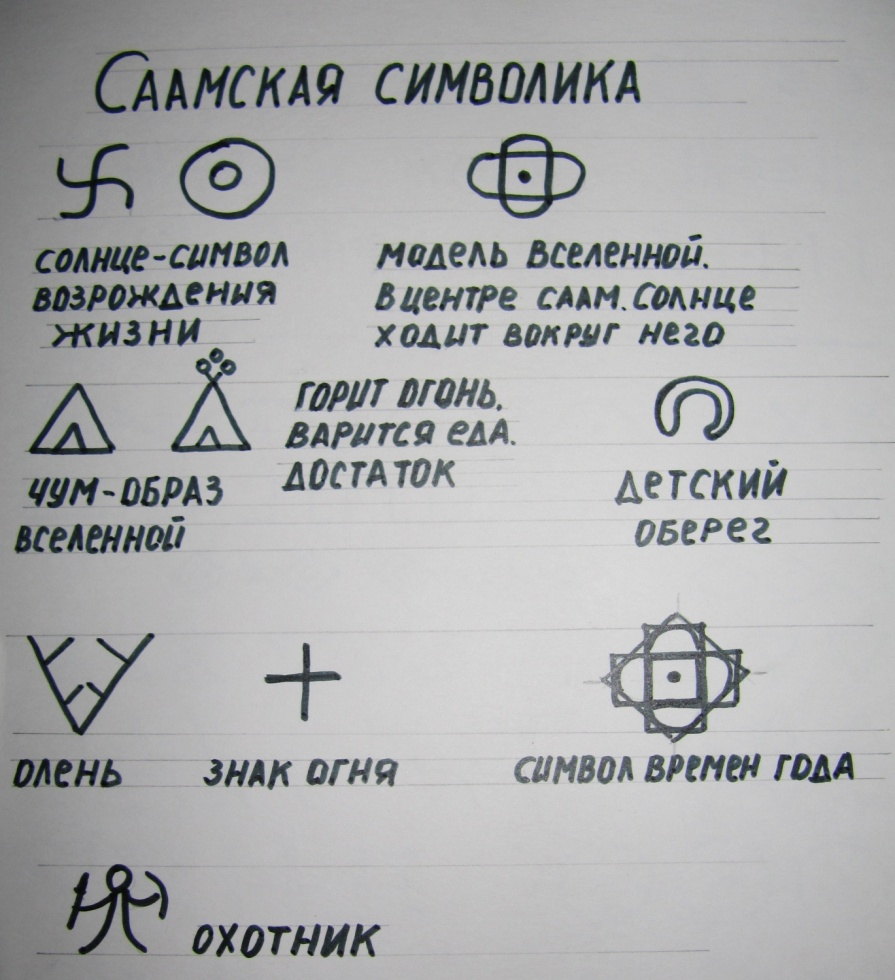 Саамская символика
солнце-символ
возрождения
жизни
модель вселенной.
в центре саам. солнце
ходит вокруг него
чум-образ
вселенной
горит огонь.
варится еда.
достаток
детский
оберег
олень
знак огня
символ времен года
охотник